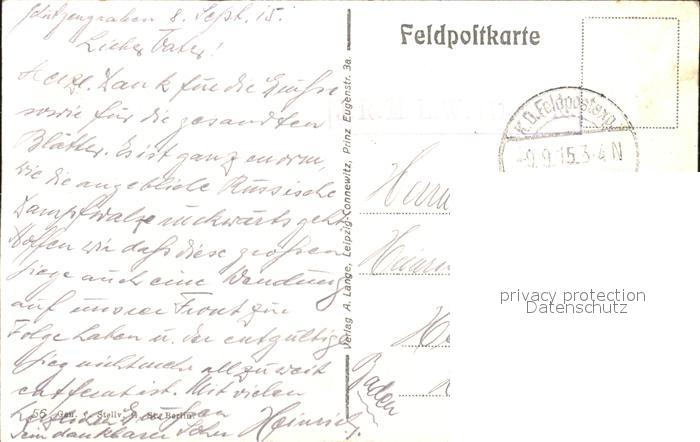 Schützengraben 8. Sept. 15.
Lieber Vater!
Herzl. Dank für die Grüße
sowie für die gesandten
Blätter. Es ist ganz enorm,
wie die angebliche Russische
Dampfwalze rückwärts geht.
Hoffen wir daß diese großen
Siege auch eine Wendung
auf unsrer Front zur
Folge haben u. der entgültige
Sieg nicht mehr allzuweit
entfernt ist. Mit vielen
herzlichen Grüßen
Dein dankbarer Sohn Heinrich.
55 Gen. v. Stellv. G. St. Berlin
Verlag A. Lange, Leipzig-Connewitz, Prinz Eugenstr. 3a.
Feldpostkarte
K.D. Feldpostexp.
-9.9.15.3-4N
Herrn
Heinri
Baden
privacy protection
Datenschutz